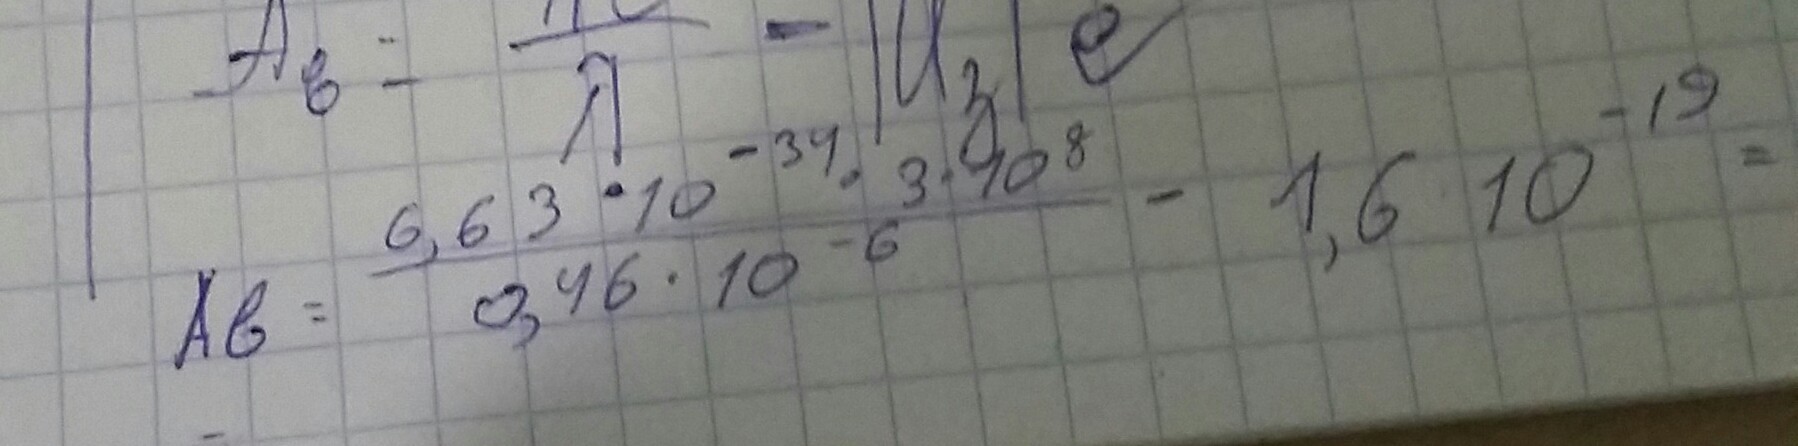 A_в = hc/λ - |U_з| e
Aв = 6,63 · 10^-34 · 3 · 10^8 / 0,46 · 10^-6 - 1,6 10^-19 =
=